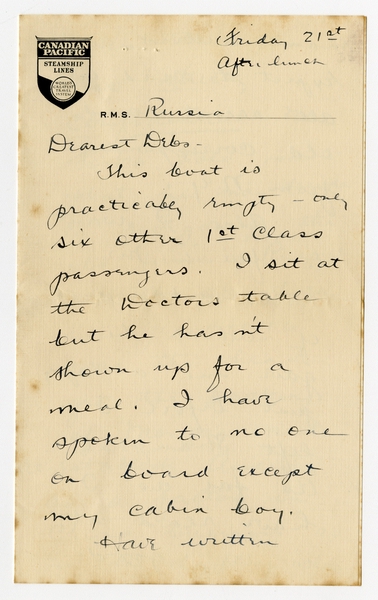 CANADIAN
PACIFIC
STEAMSHIP
LINES
WORLD'S
GREATEST
TRAVEL
SYSTEM
Friday 21st
After lunch
R.M.S. Russia
Dearest Debs-
This boat is
practicably empty - only
six other 1st Class
passengers. I sit at
the Doctors table
but he hasn't
shown up for a
meal. I have
spoken to no one
on board except
my cabin boy.
Have written